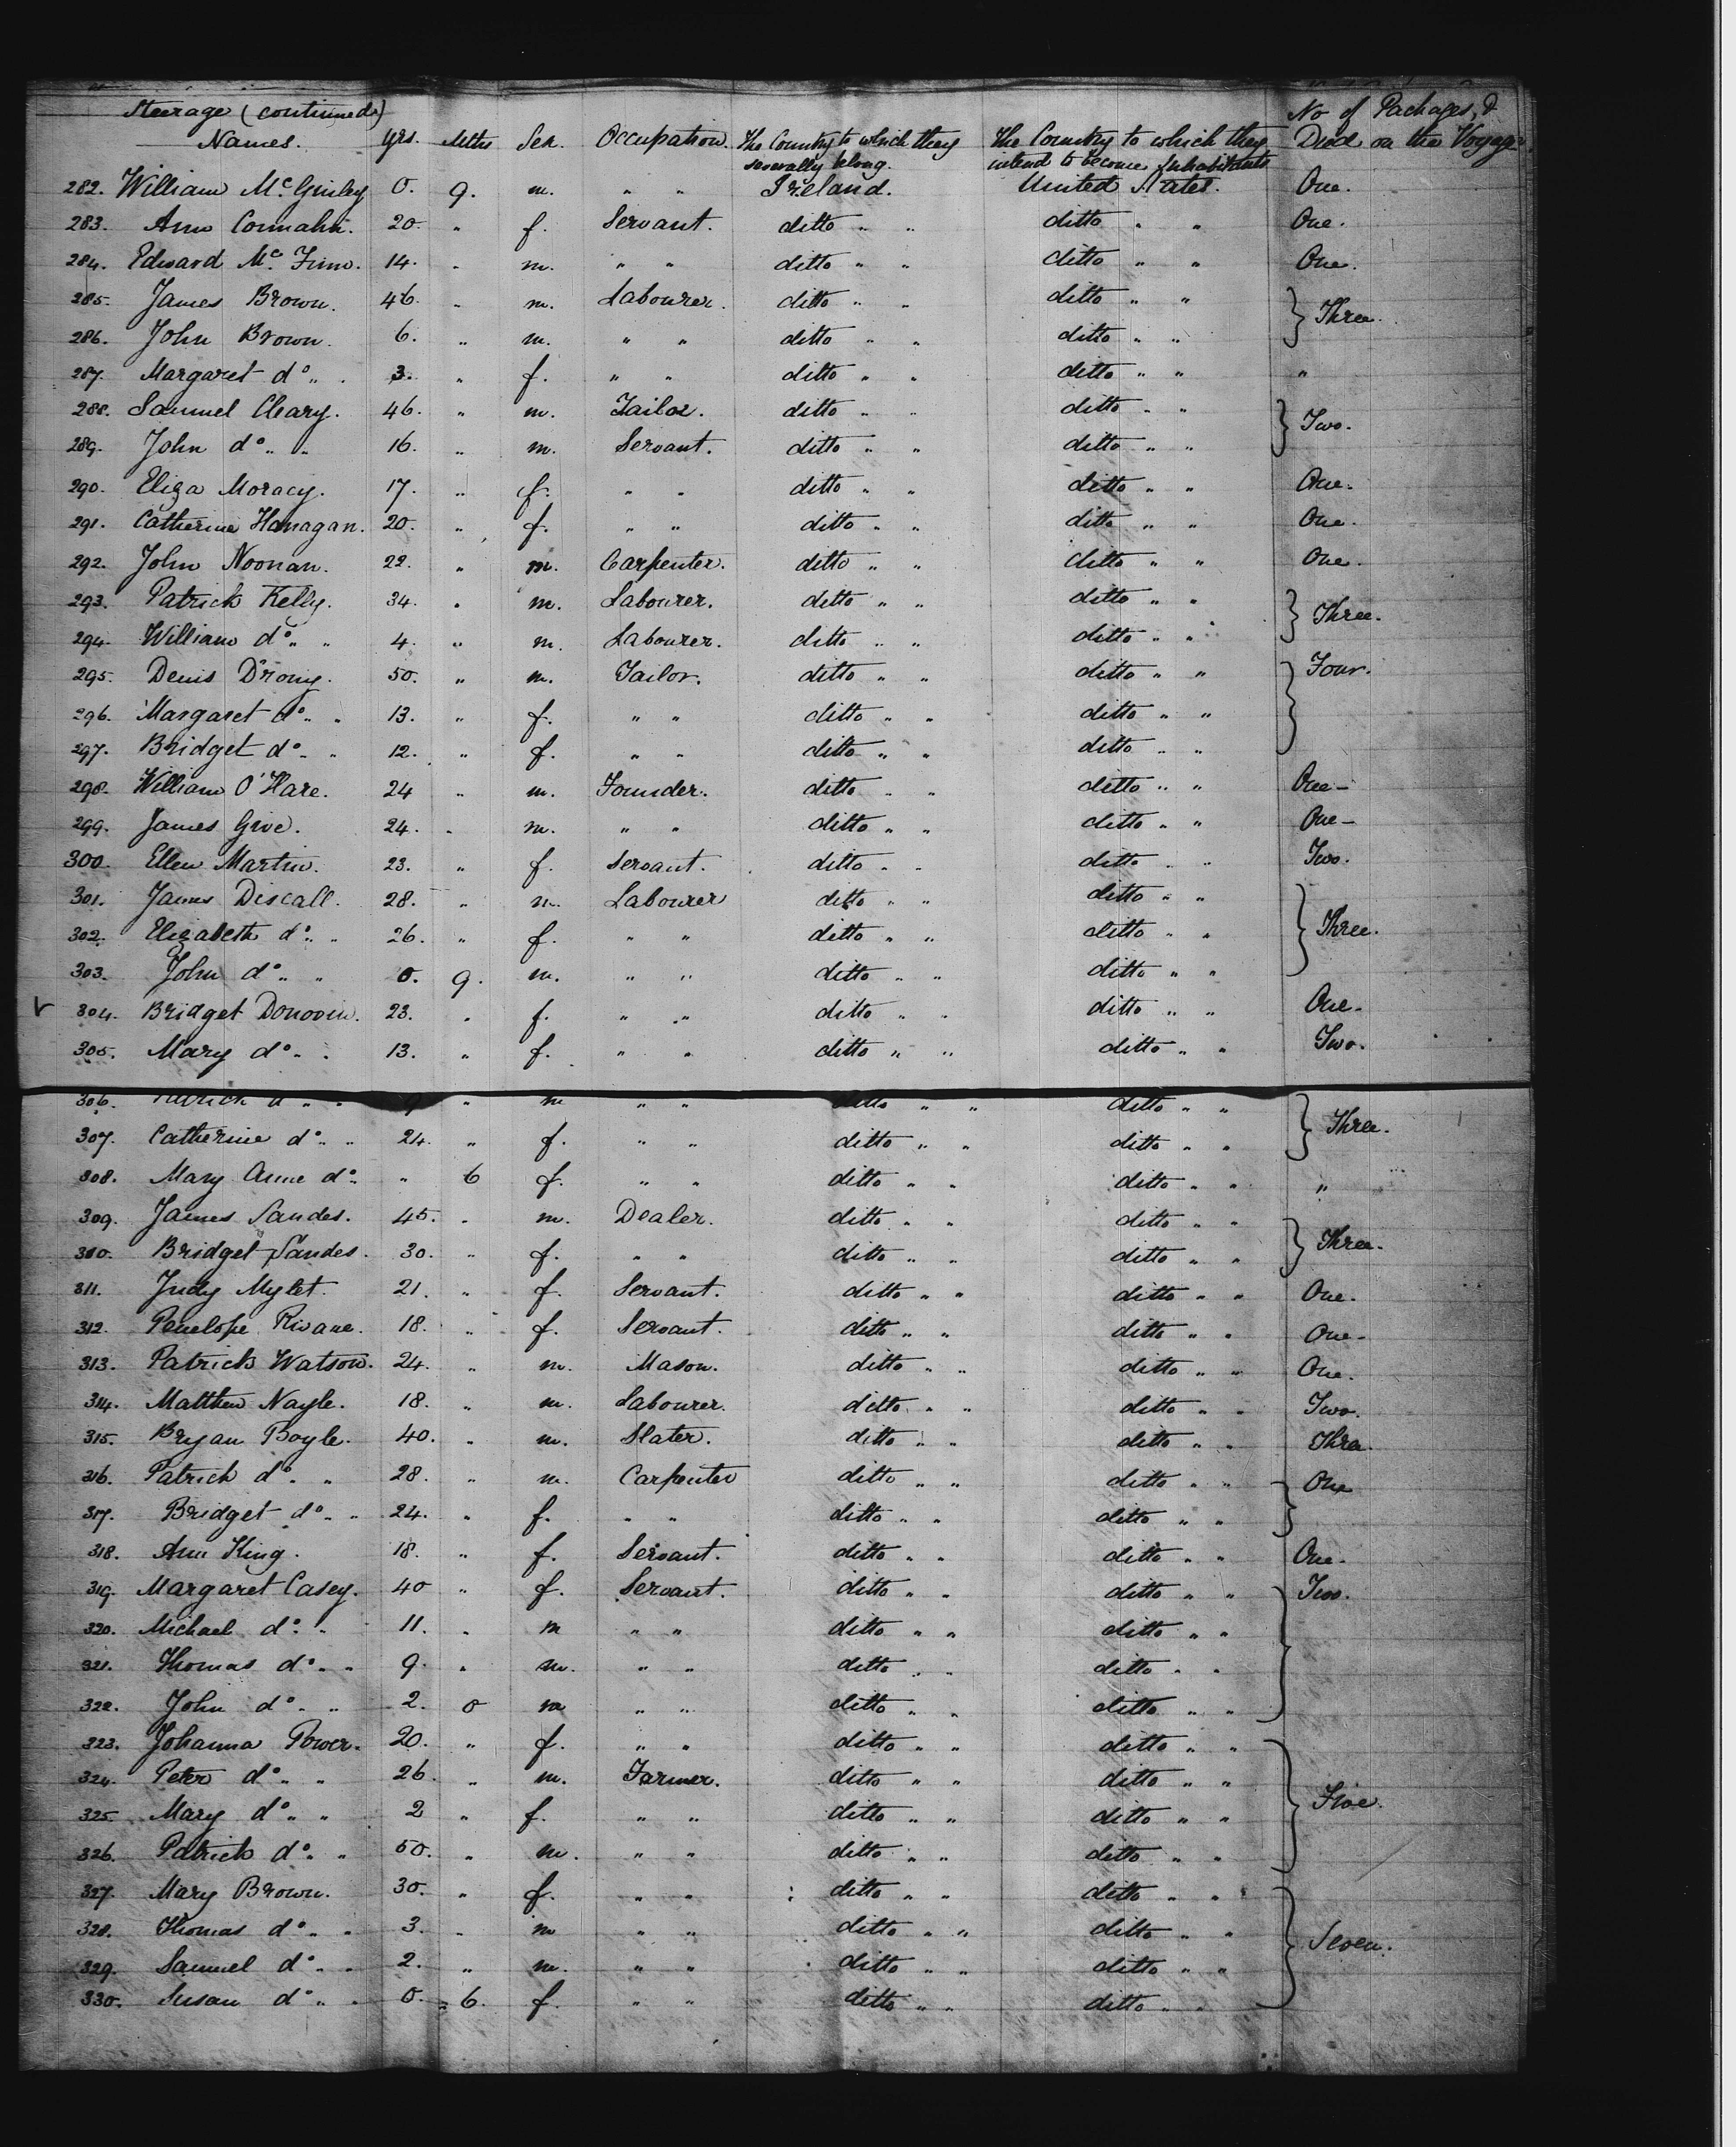 Steerage (continued)
Names. Yrs. Mths Sex. Occupation. The Country to which they severally belong. The Country to which they intend to become Inhabitants No of Packages, & Died on the Voyage
282. William McGinley 0. 9. m. " " Ireland. United States. One.
283. Ann Connahn. 20. " f. Servant. ditto " " ditto " " One.
284. Edward Mc Finn. 14. " m. " " ditto " " ditto " " One.
285. James Brown. 46. " m. Labourer. ditto " " ditto " " } Three.
286. John Brown. 6. " m. " " ditto " " ditto " "
287. Margaret do " . 3. " f. " " ditto " " ditto " " "
288. Samuel Cleary. 46. " m. Tailor. ditto " " ditto " " } Two.
289. John do " " 16. " m. Servant. ditto " " ditto " "
290. Eliza Moracy. 17. " f. " " ditto " " ditto " " One.
291. Catherine Hanagan. 20. " f. " " ditto " " ditto " " One.
292. John Noonan. 22. " m. Carpenter. ditto " " ditto " " One.
293. Patrick Kelly. 34. " m. Labourer. ditto " " ditto " " } Three.
294. William do " " 4. " m. Labourer. ditto " " ditto " "
295. Denis D'rony. 50. " m. Tailor. ditto " " ditto " " } Four.
296. Margaret do " " 13. " f. " " ditto " " ditto " "
297. Bridget do " " 12. " f. " " ditto " " ditto " "
298. William O'Hare. 24 " m. Founder. ditto " " ditto " " One -
299. James Give. 24. " m. " " ditto " " ditto " " One -
300. Ellen Martin. 23. " f. Servant. ditto " " ditto " " Two.
301. James Discall. 28. " m. Labourer ditto " " ditto " " } Three.
302. Elizabeth do " " 26. " f. " " ditto " " ditto " "
303. John do " " 0. 9. m. " " ditto " " ditto " "
304. Bridget Donovin. 23. " f. " " ditto " " ditto " " One.
305. Mary do " " 13. " f. " " ditto " " ditto " " Two.
306. Patrick d " " 9 " m " " ditto " " ditto " " } Three.
307. Catherine do " " 24. " f. " " ditto " " ditto " "
308. Mary Anne do " " 6 f. " " ditto " " ditto " " "
309. James Sandes. 45. " m. Dealer. ditto " " ditto " " } Three.
310. Bridget Sandes. 30. " f. " " ditto " " ditto " "
311. Judy Mylet. 21. " f. Servant. ditto " " ditto " " One.
312. Penelope Rivane. 18. " f. Servant. ditto " " ditto " " One -
313. Patrick Watson. 24. " m. Mason. ditto " " ditto " " One.
314. Matthew Nayle. 18. " m. Labourer. ditto " " ditto " " Two.
315. Bryan Boyle. 40. " m. Slater. ditto " " ditto " " Three.
316. Patrick do " " 28. " m. Carpenter ditto " " ditto " " } One
317. Bridget do " " 24. " f. " " ditto " " ditto " "
318. Ann King. 18. " f. Servant. ditto " " ditto " " One.
319. Margaret Casey. 40 " f. Servant. ditto " " ditto " " } Two.
320. Michael do " 11. " m " " ditto " " ditto " "
321. Thomas do " " 9. " m. " " ditto " " ditto " "
322. John do " " 2. 0 m " " ditto " " ditto " "
323. Johanna Power. 20. " f. " " ditto " " ditto " " } Five.
324. Peter do " " 26. " m. Farmer. ditto " " ditto " "
325. Mary do " " 2 " f. " " ditto " " ditto " "
326. Patrick do " " 50. " m. " " ditto " " ditto " "
327. Mary Brown. 30. " f. " " ditto " " ditto " " } Seven.
328. Thomas do " " 3. " m " " ditto " " ditto " "
329. Samuel do " " 2. " m. " " ditto " " ditto " "
330. Susan do " " 0. " 6. f. " " ditto " " ditto " "